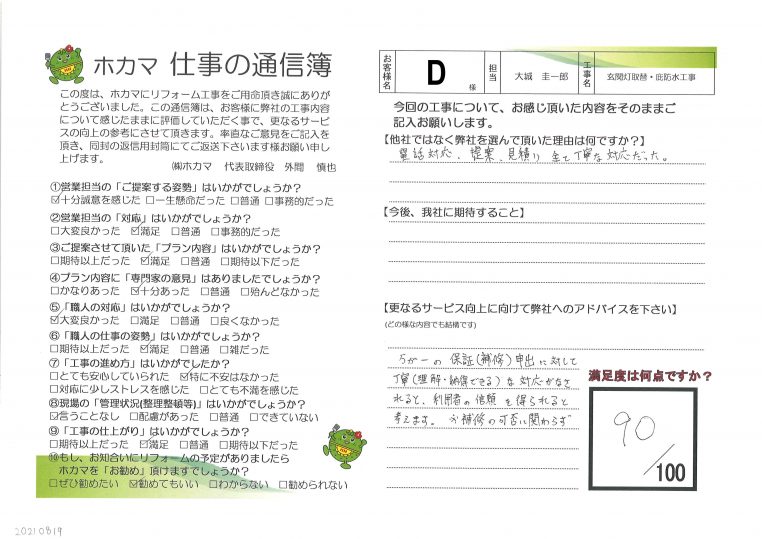 ホカマ 仕事の通信簿
この度は、ホカマにリフォーム工事をご用命頂き誠にありが
とうございました。この通信簿は、お客様に弊社の工事内容
について感じたままに評価していただく事で、更なるサービ
スの向上の参考にさせて頂きます。率直なご意見をご記入を
頂き、同封の返信用封筒にてご返送下さいます様お願い申し
上げます。
㈱ホカマ 代表取締役 外間 慎也
①営業担当の「ご提案する姿勢」はいかがでしょうか?
☑十分誠意を感じた □一生懸命だった □普通 □事務的だった
②営業担当の「対応」はいかがでしょうか?
□大変良かった ☑満足 □普通 □事務的だった
③ご提案させて頂いた「プラン内容」はいかがでしょうか?
□期待以上だった ☑満足 □普通 □期待以下だった
④プラン内容に「専門家の意見」はありましたでしょうか?
□かなりあった ☑十分あった □普通 □殆んどなかった
⑤「職人の対応」はいかがでしょうか?
☑大変良かった □満足 □普通 □良くなかった
⑥「職人の仕事の姿勢」はいかがでしょうか?
□期待以上だった ☑満足 □普通 □雑だった
⑦「工事の進め方」はいかがでしたか?
□とても安心していられた ☑特に不安はなかった
□対応に少しストレスを感じた □とても不満を感じた
⑧現場の「管理状況(整理整頓等)」はいかがでしょうか?
☑言うことなし □配慮があった □普通 □できていない
⑨「工事の仕上がり」はいかがでしょうか?
□期待以上だった ☑満足 □普通 □期待以下だった
⑩もし、お知合いにリフォームの予定がありましたら
ホカマを「お勧め」頂けますでしょうか?
□ぜひ勧めたい ☑勧めてもいい □わからない □勧められない
20210819
お客様名 D 様 担当 大城 圭一郎 工事名 玄関灯取替・庇防水工事
今回の工事について、お感じ頂いた内容をそのままご
記入お願いします。
【他社ではなく弊社を選んで頂いた理由は何ですか?】
電話対応、提案、見積り 全て丁寧な対応だった。
【今後、我社に期待すること】
【更なるサービス向上に向けて弊社へのアドバイスを下さい】
(どの様な内容でも結構です)
万が一の 保証(補修)申出に対して
丁寧(理解・納得できる)な対応がなさ
れると、利用者の信頼を得られると
考えます。 補修の可否に関わらず
満足度は何点ですか?
90
/100